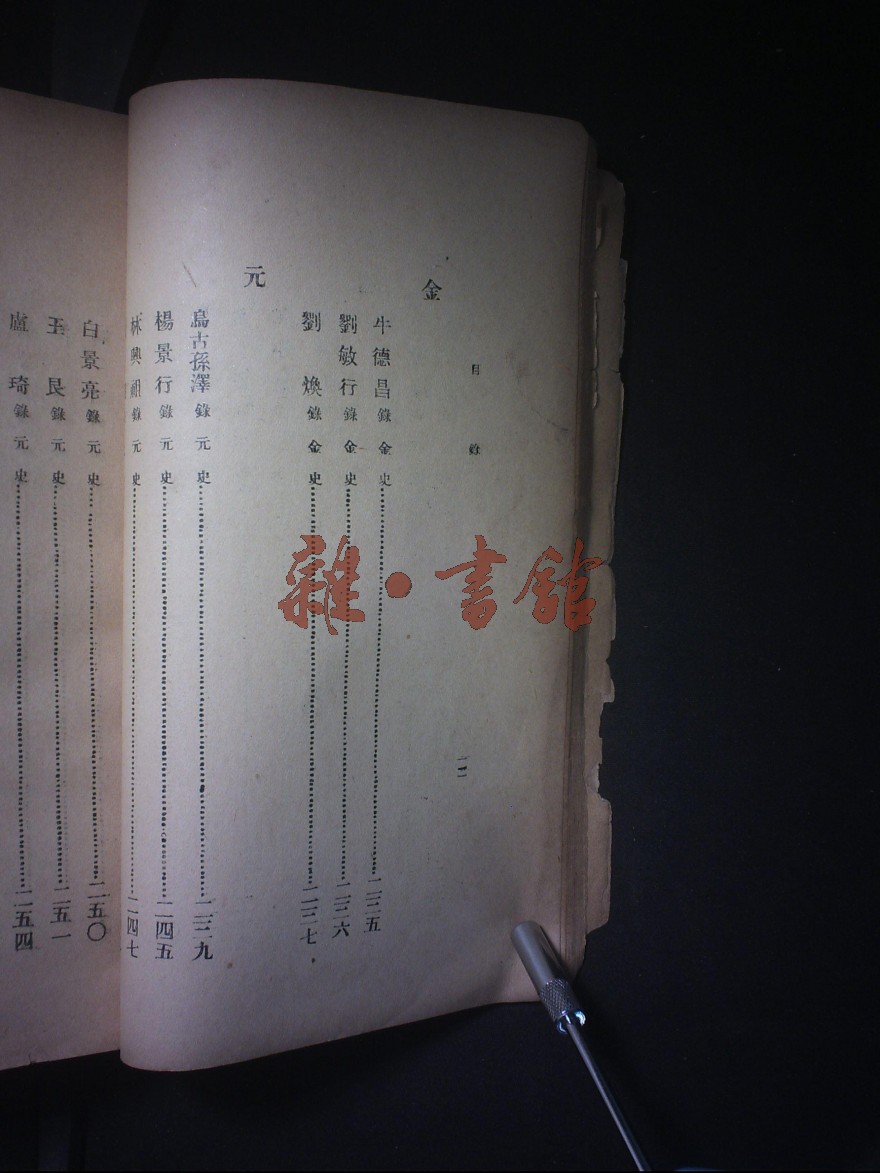 目錄
金
牛德昌錄金史……二三五
劉敏行錄金史……二三六
劉煥錄金史……二三七
元
烏古孫澤錄元史……二三九
楊景行錄元史……二四五
林興祖錄元史……二四七
白景亮錄元史……二五〇
王艮錄元史……二五一
盧琦錄元史……二五四
雜·書館